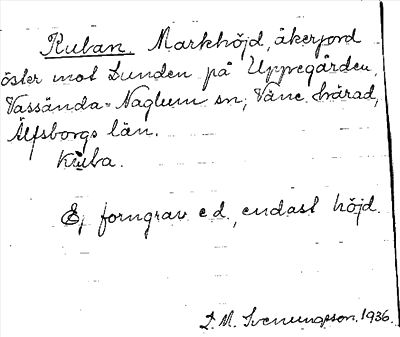 Kuban. Markhöjd, åkerjord
öster mot Lunden på Uppegården,
Vassända-Naglum sn, Väne härad,
Älfsborgs län.
Kuba.
Ej forngrav e d., endast höjd.
D. M. Svenungsson. 1936.